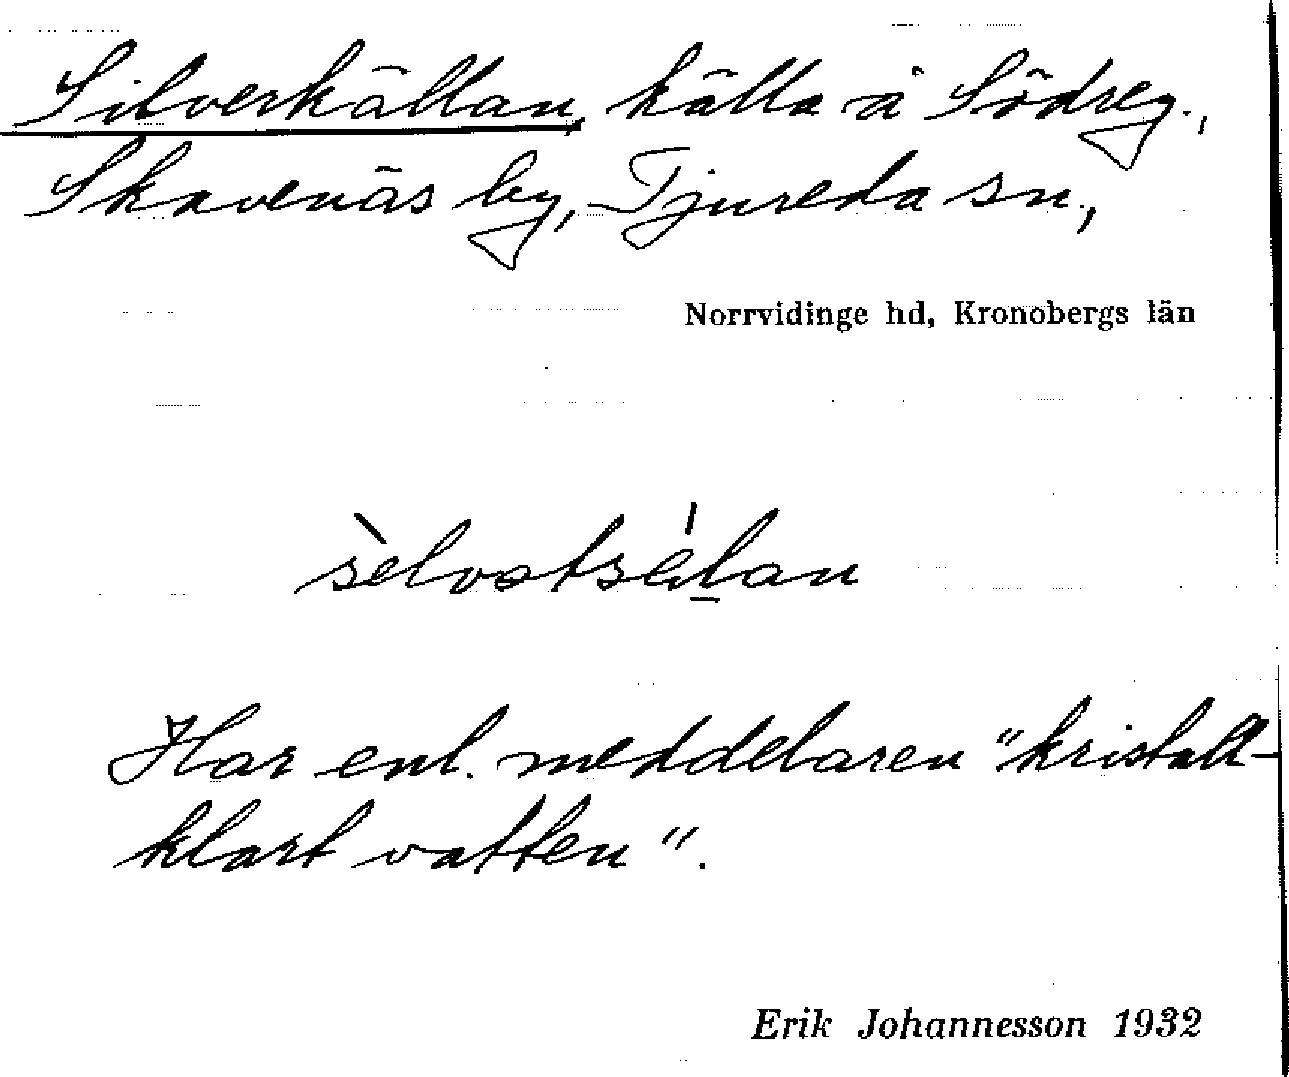 Silverkällan, källa å Södreg.,
Skavenäs by, Tjureda sn.,
Norrvidinge hd, Kronobergs län
Har enl. meddelaren "kristall-
klart vatten".
Erik Johannesson 1932